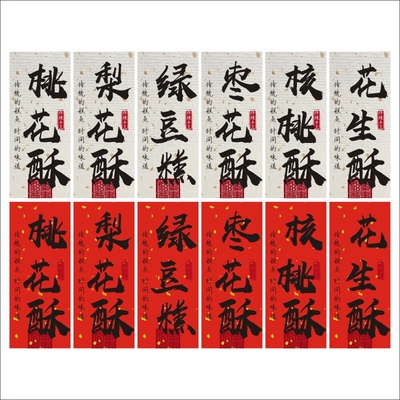 桃花酥
传统的糕点 时间的味道
梨花酥
传统的糕点 时间的味道
绿豆糕
传统的糕点 时间的味道
枣花酥
传统的糕点 时间的味道
核桃酥
传统的糕点 时间的味道
花生酥
传统的糕点 时间的味道
桃花酥
传统的糕点 时间的味道
梨花酥
传统的糕点 时间的味道
绿豆糕
传统的糕点 时间的味道
枣花酥
传统的糕点 时间的味道
核桃酥
传统的糕点 时间的味道
花生酥
传统的糕点 时间的味道